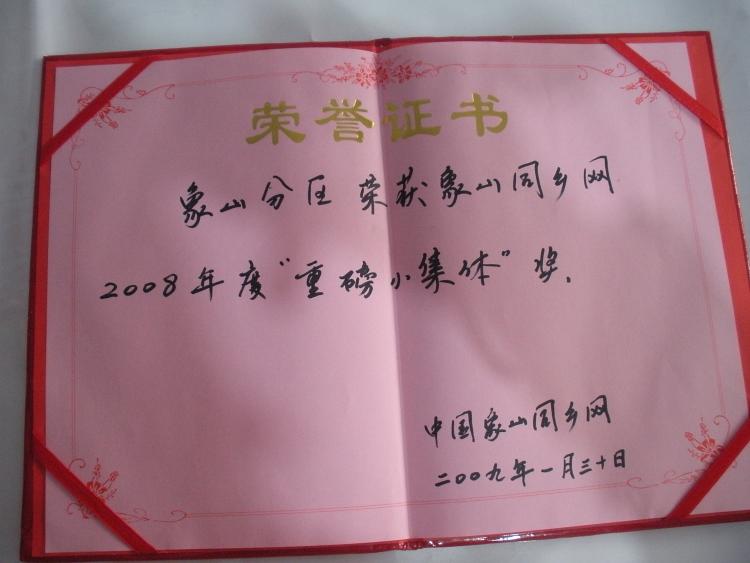 荣誉证书
象山分区 荣获象山同乡网
2008年度“重磅小集体”奖.
中国象山同乡网
二00九年一月三十日